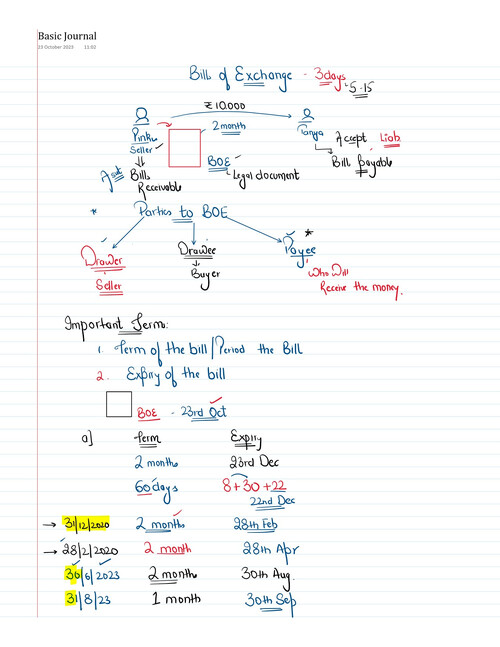 Basic Journal
23 October 2023 11:02
Bill of Exchange - 3days
5-15
₹10.000
Pinki
Seller
2 month
Tanya
Accept Liab.
Bill Payable
BOE
Legal document
Asset
Bills
Receivable
* Parties to BOE
Drawer
Seller
Drawee
Buyer
Payee *
Who Will
Receive the money.
Important Term:
1. Term of the bill/Period the Bill
2. Expiry of the bill
BOE - 23rd Oct
a] Term Expiry
2 months 23rd Dec
60 days 8+30+22
22nd Dec
→ 31/12/2020 2 months 28th Feb
→ 28/2/2020 2 month 28th Apr
30/6/2023 2 month 30th Aug.
31/8/23 1 month 30th Sep